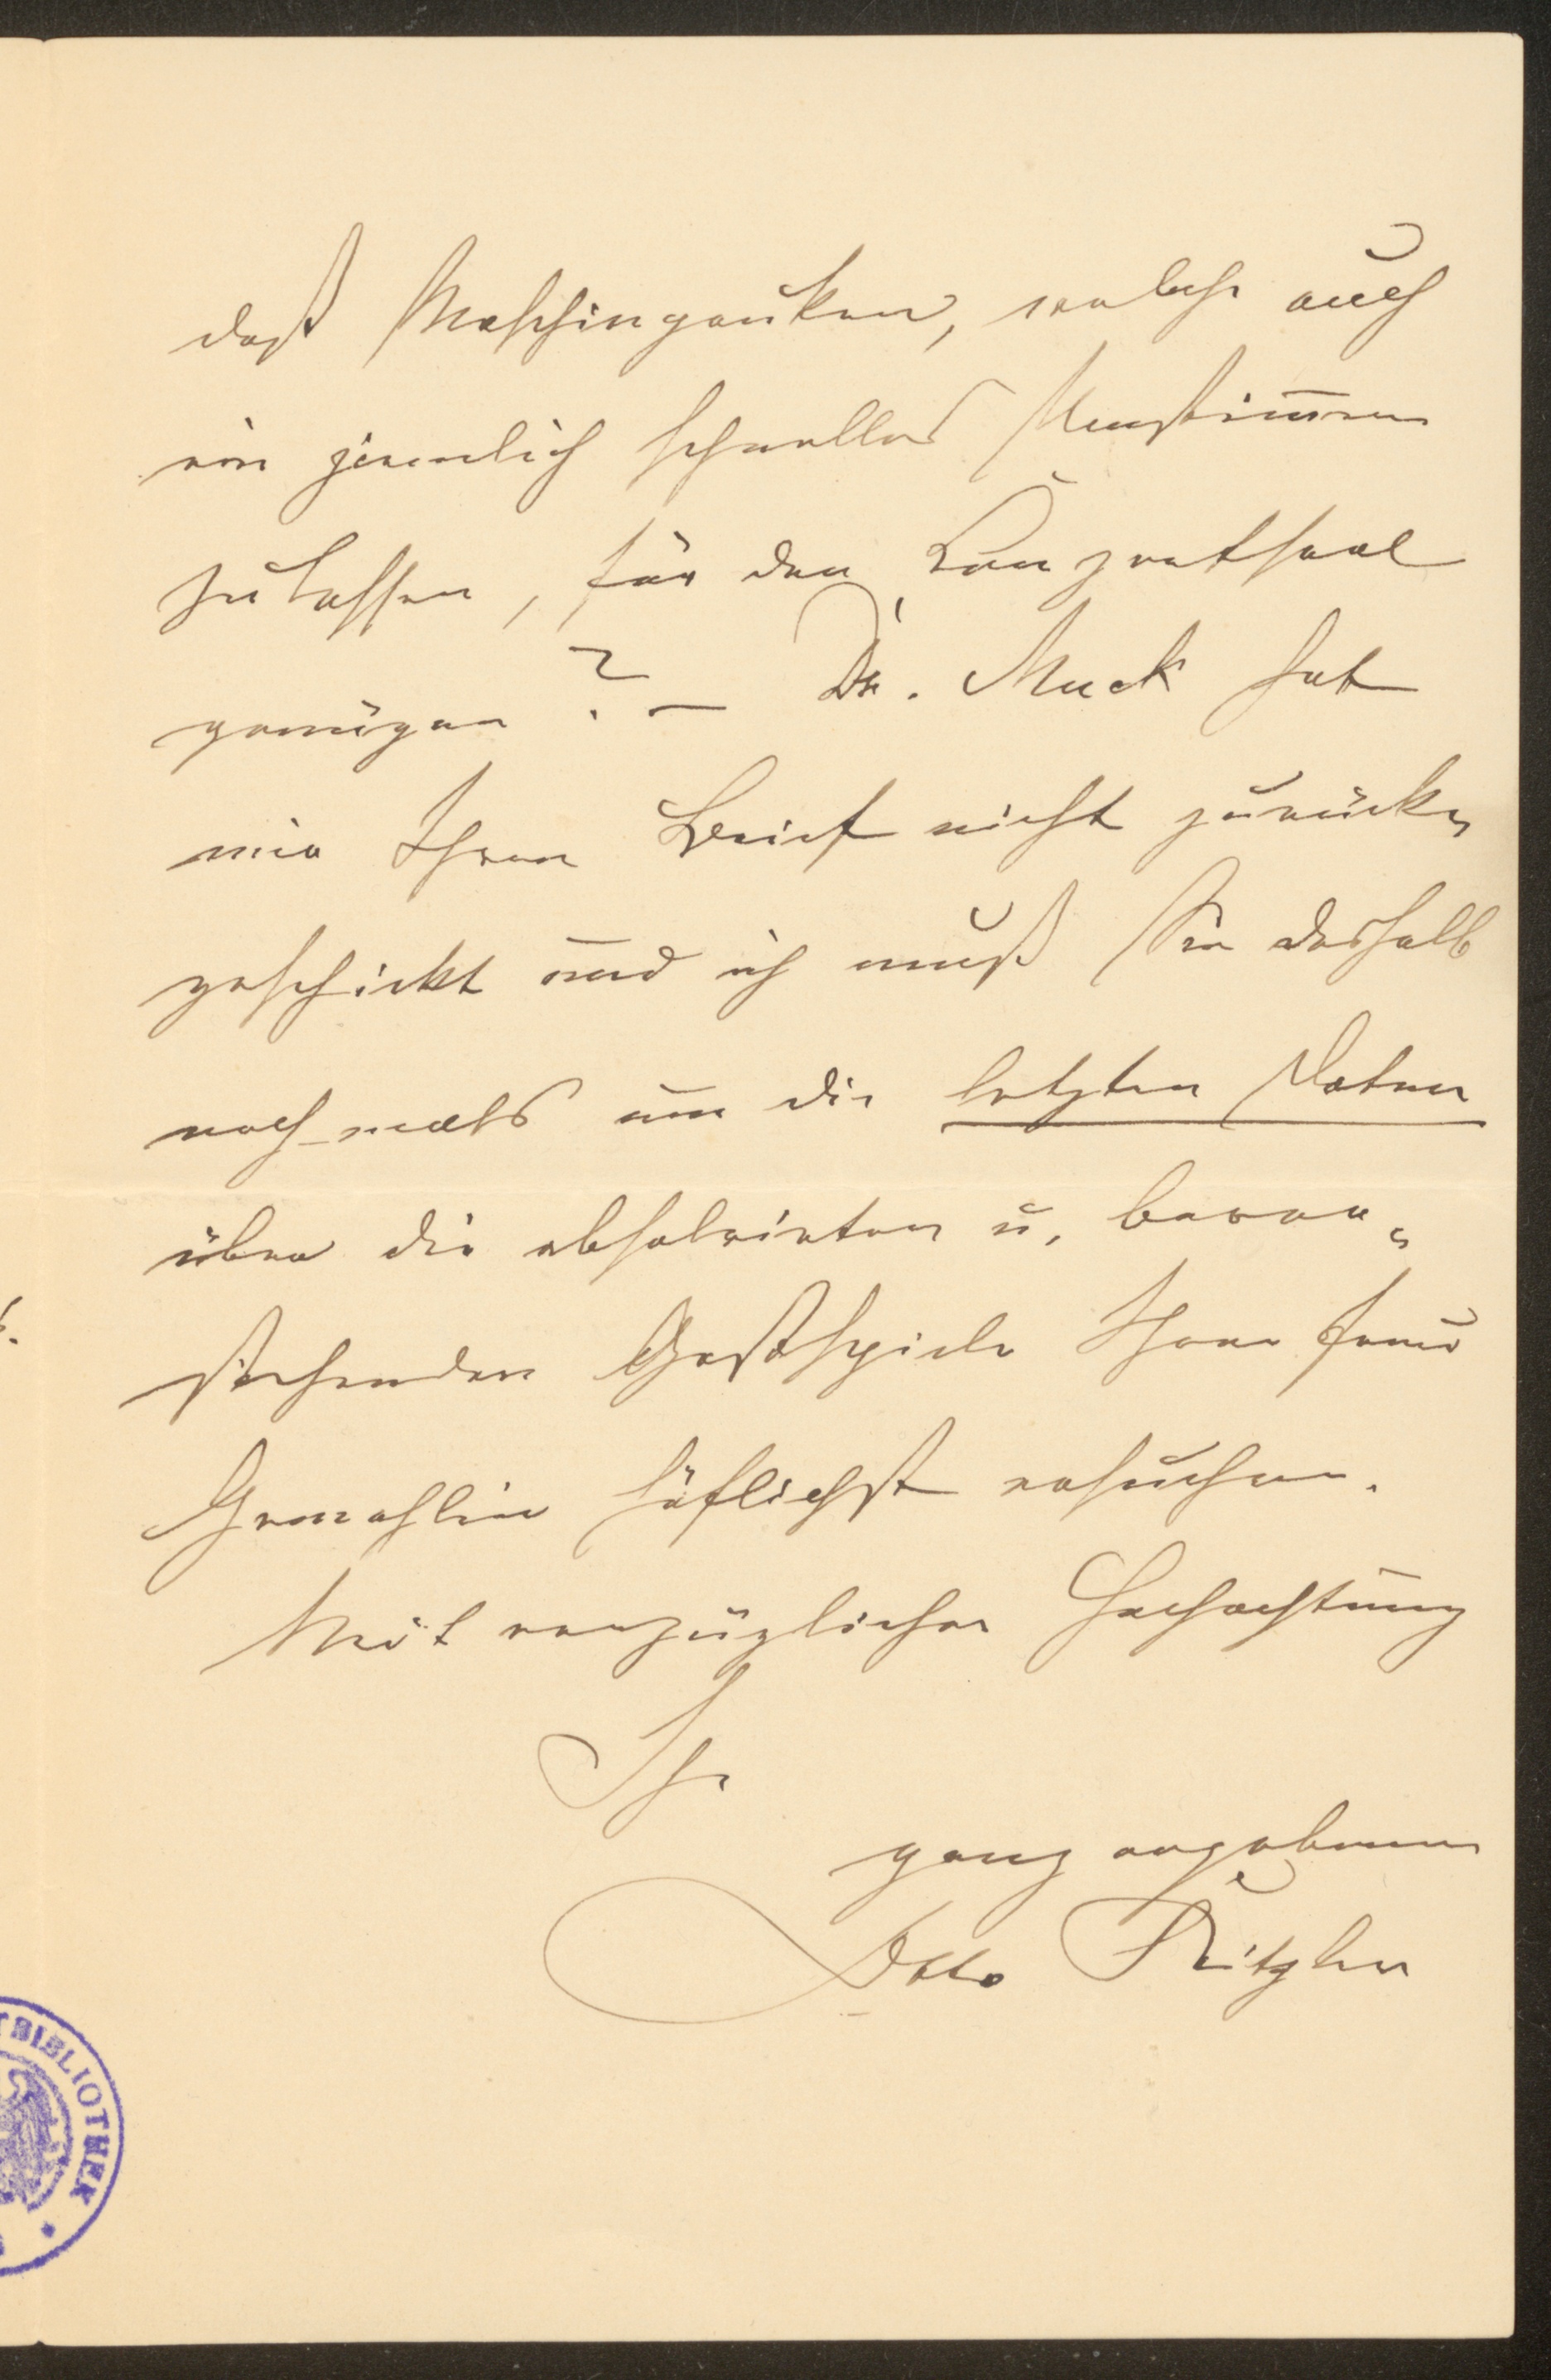 daß Maschinpauken, welche auch
ein ziemlich schnelles Umstimmen
zulassen, für den Konzertsaal
genügen? – Dr. Muck hat
mir Ihren Brief nicht zurück„
geschickt und ich muß Sie deshalb
noch-mals um die letzten Daten
über die absolvirten u. bevor„
stehenden Gastspiele Ihrer Frau
Gemahlin höflichst ersuchen.
Mit vorzüglicher Hochachtung
Ihr
ganz ergebener
Otto
BIBLIOTHEK